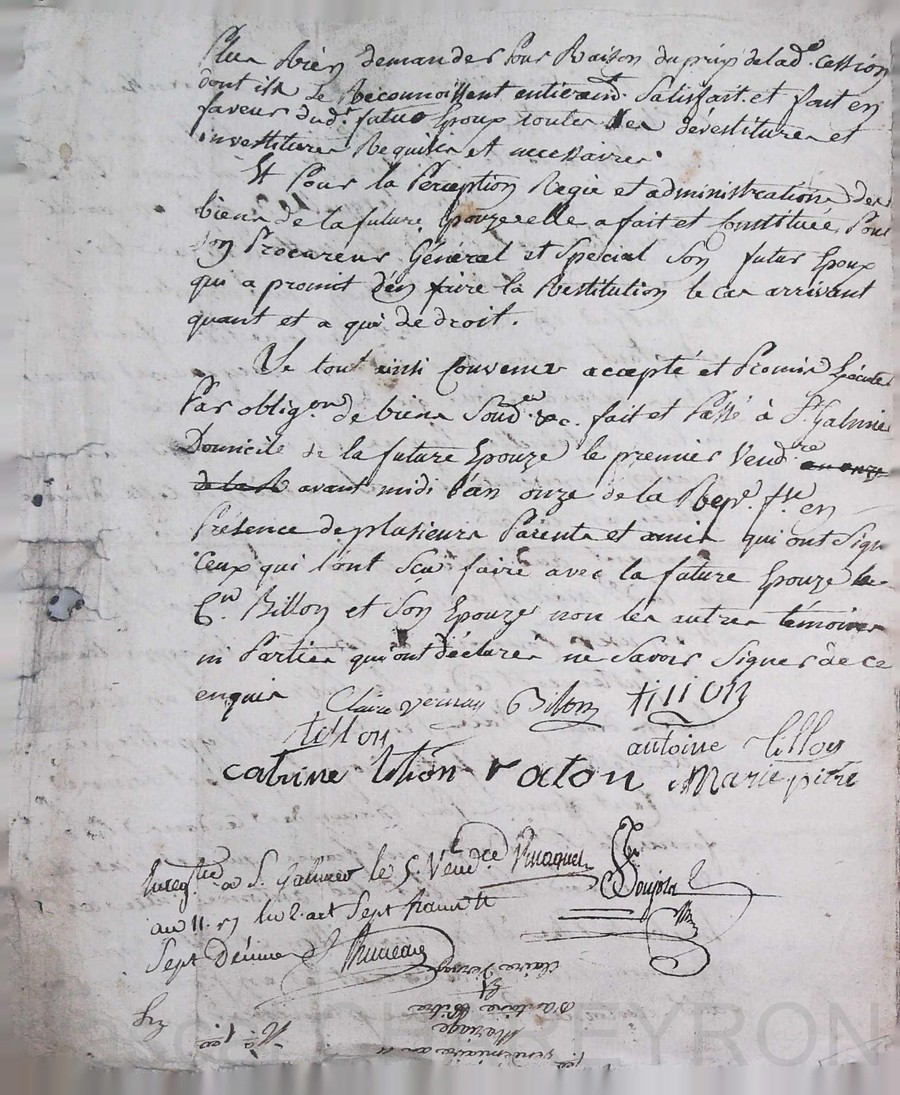 Plus Rien demander Pour Raison du prix de lad.e Cession
dont ils se Reconnoissent entieremt. Satisfait et font en
faveur dud.t futur Epoux toutes les dévestitures et
investitures Requises et necessaires.
Et Pour la Perception Regie et administration des
biens de la future Epouze elle a fait et Constitué Pour
Son Procureur Général et Spécial Son futur Epoux
qui a promit d'en faire la Restitution le cas arrivant
quant et a qui de droit.
Le tout ainsi Convenu accepté et Promis Exécuter
Par obligon de biens Soud.on &c. fait et Passé à St Galmier
Domicile de la future Epouze le premier Vend.re
avant midi l'an onze de la Rep.e fse en
Présence de plusieurs Parents et amis qui ont Signé
Ceux qui l'ont Sçu faire avec la future Epouze le
Cen. Billon et Son Epouze non les autres témoins
ni Parties qui ont déclarés ne Savoir Signer de ce
enquis Claire Vernay Billon tillon
antoine tillon
catrine raton Marie pitre
Enregtré a St Galmier le 5 Vendre
an 11 art Sept francs
Sept Décimes
Claire Vernay
Et
Antoine Pitre
Mariage
1er vendemiaire an 11